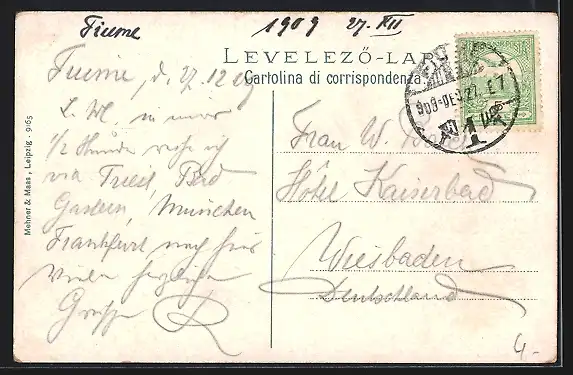 Fiume 1909 27. XII
LEVELEZŐ-LAP
Cartolina di corrispondenza
Fiume, d. 27.12.09
L. Wl. in einer
1/2 Stunde reise ich
via Triest, Bad
Gastein, München
Frankfurt nach
viele herzliche
Grüsse R
Frau W.
Hôtel Kaiserbad
Wiesbaden
Deutschland
Mehner & Maas, Leipzig - 9165
4.-